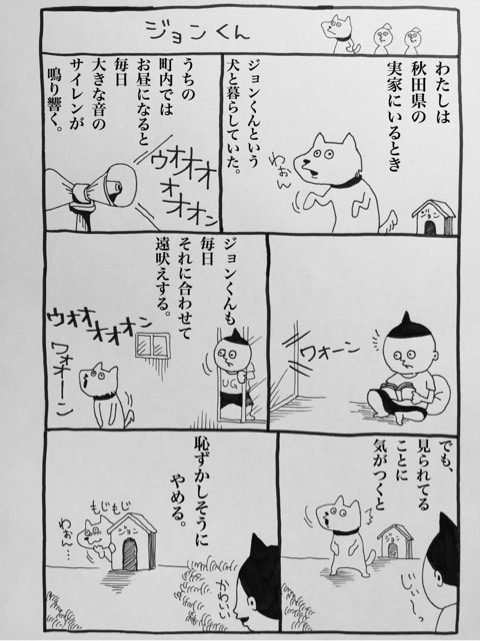 ジョンくん
わたしは
秋田県の
実家にいるとき
ジョンくんという
犬と暮らしていた。
わぉん
ジョン
うちの
町内では
お昼になると
毎日
大きな音の
サイレンが
鳴り響く。
ウオオオ
オオオン
ワォーン
ジョンくんも
毎日
それに合わせて
遠吠えする。
ウオオオオオン
ワォーン
でも、
見られてる
ことに
気がつくと
ジョン
じぃ〜っ
恥ずかしそうに
やめる。
もじもじ
わぉん…
ジョン
かわいい